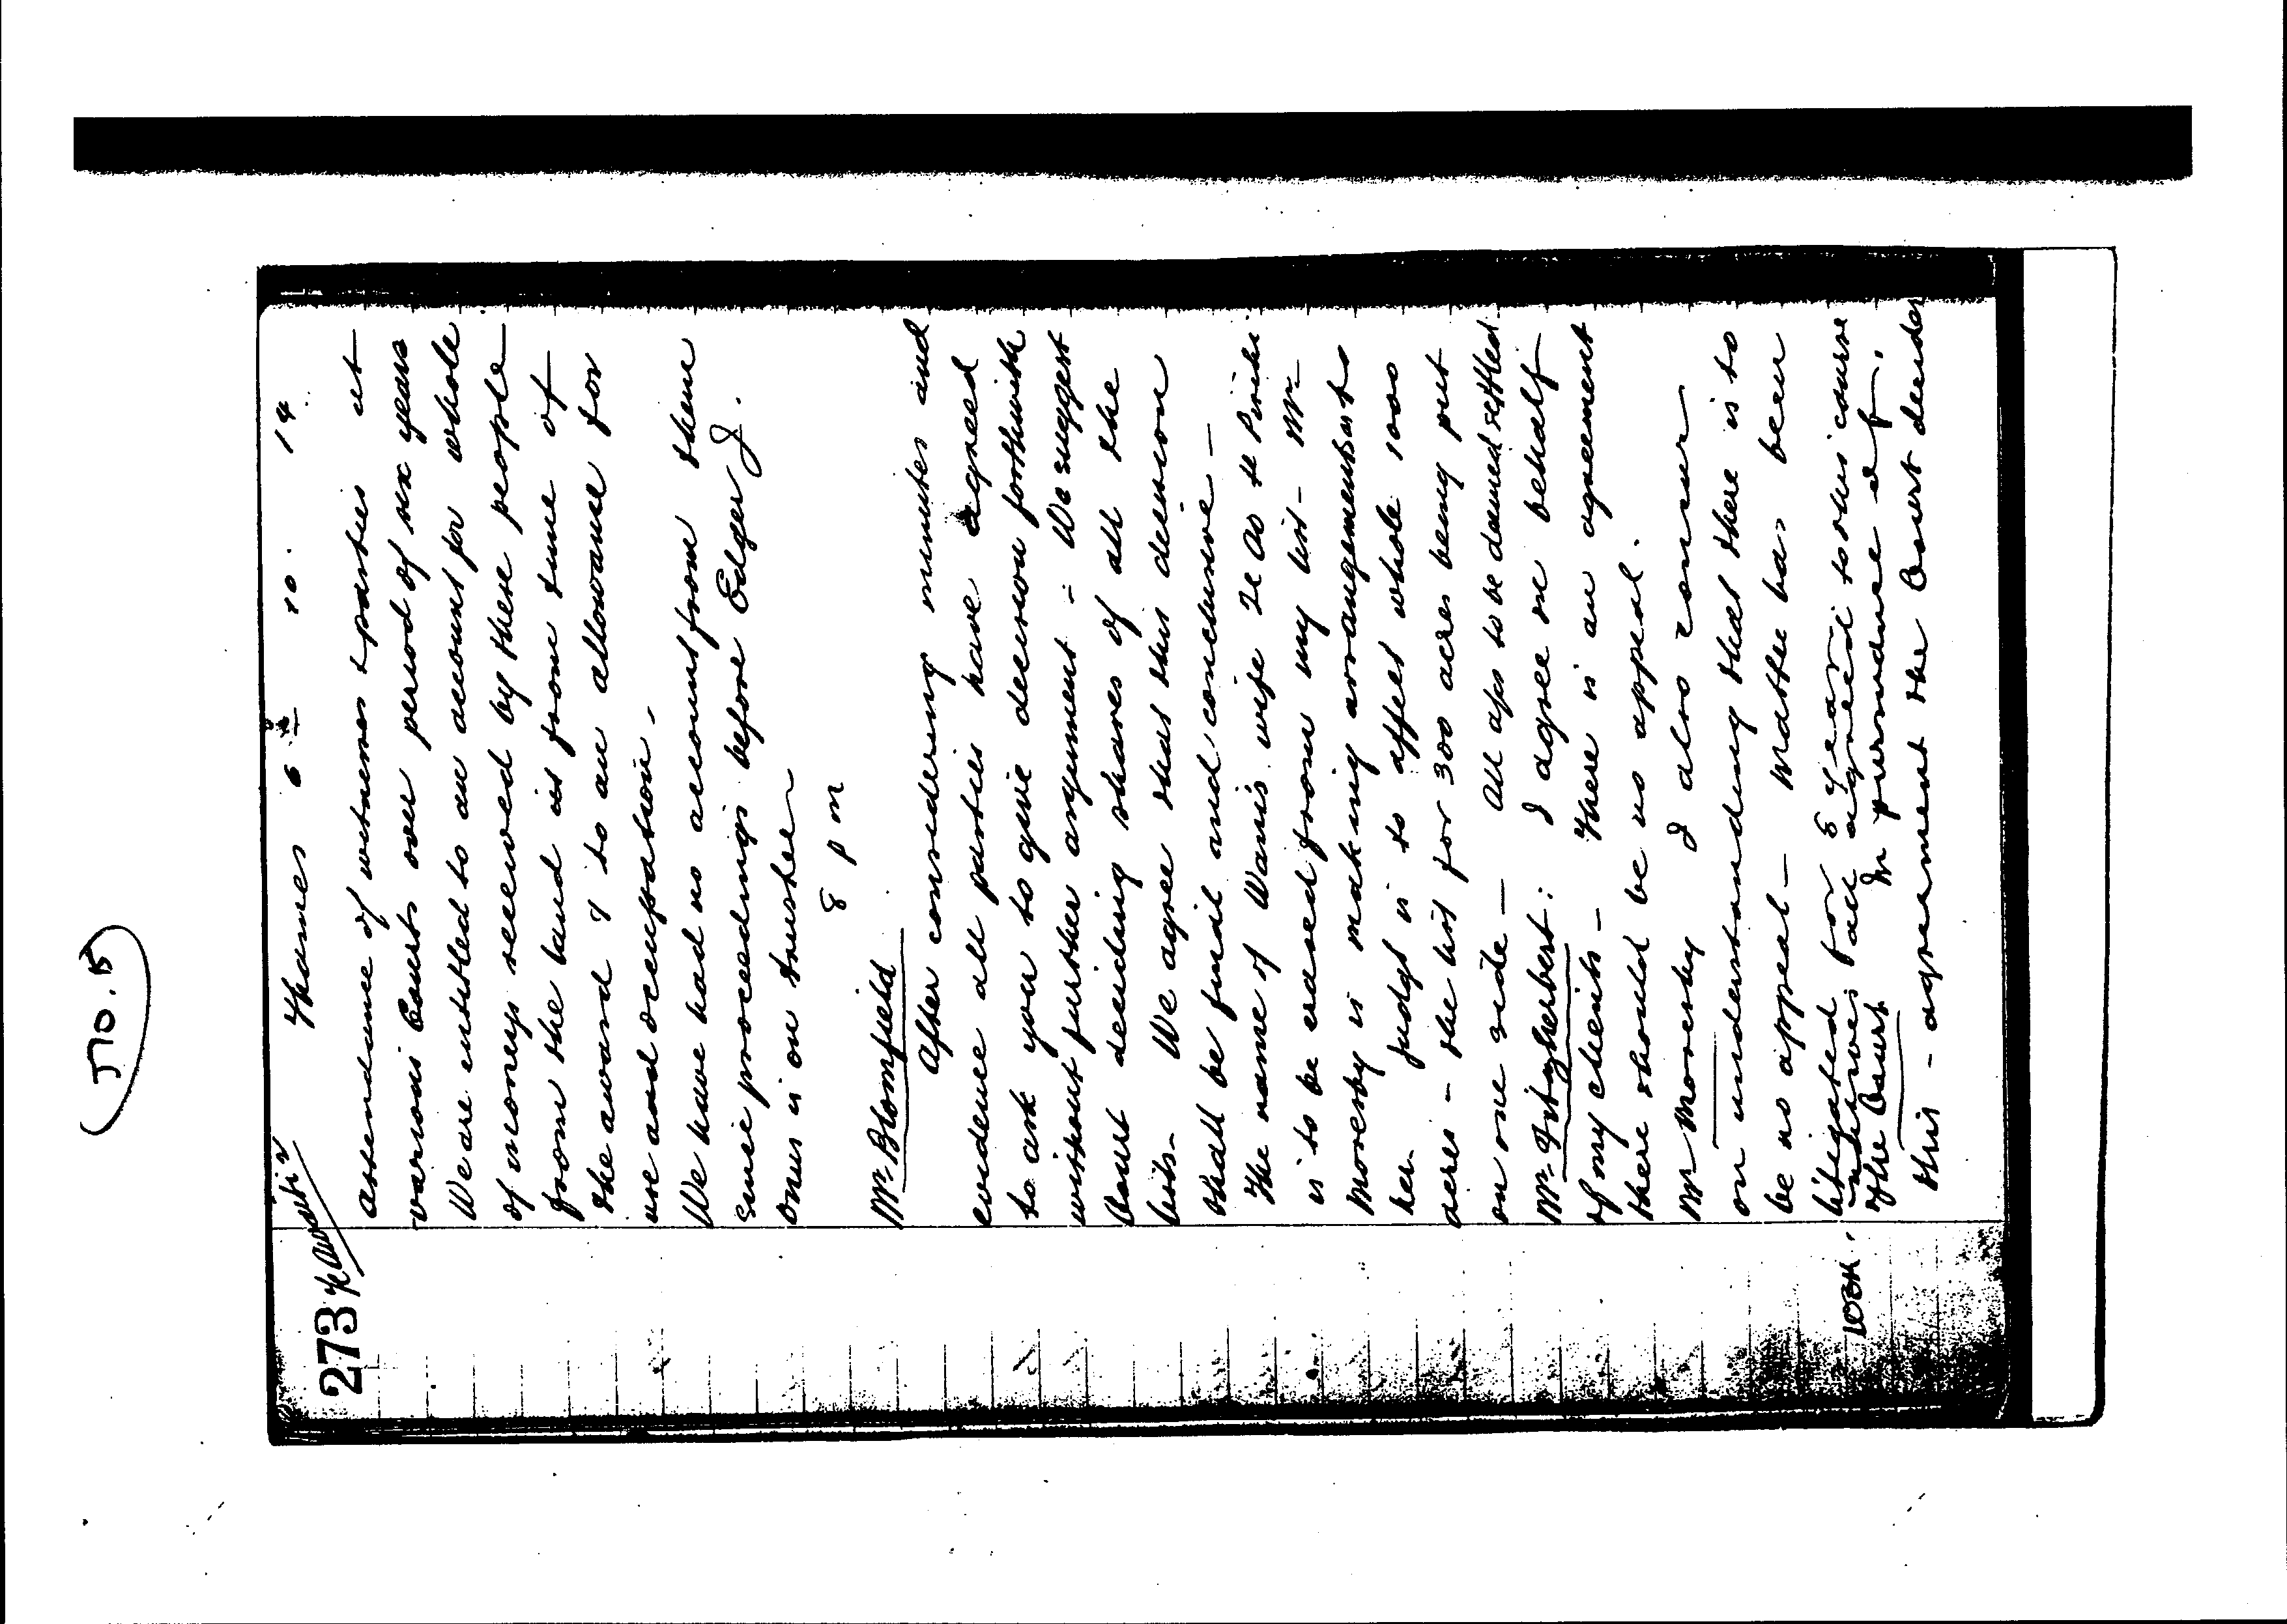 J70.15
273
Thames 6th 10. 14
attendance of witnesses & parties at
various Courts over period of six years
We are entitled to an account for whole
of moneys received by these people
from the land ie from time of
the award & to an allowance for
use and occupation.
We have had no account from them
since proceedings before Edger J.
Onus is on trustee
8 pm
Mr Blomfield
After considering minutes and
evidence all parties have agreed
to ask you to give decision forthwith
without further argument = We suggest
Court deciding shares of all the
lists. We agree that this decision
shall be final and conclusive -
The name of Wani's wife
is to be erased from my list - Mr
Moresby is making arrangements as to
her. Judgt is to affect whole 1000
acres - the list for 300 acres being put
on one side - All aps to be deemed settled
Mr Fitzherbert: I agree on behalf
of my clients - There is an agreement
there should be no appeal.
Mr Moresby I also concur
on understanding that there is to
be no appeal - Matter has been
litigated for 6 years
natives all agreed to this course
The Court In pursuance of
this - agreement the Court decides